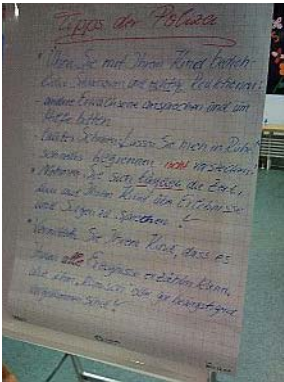 Tipps der Polizei
• Üben Sie mit Ihrem Kind
Situationen und richtige Reaktionen:
- andere Erwachsene ansprechen und um
Hilfe bitten
- lautes Schreien „Lassen Sie mich in Ruhe"
- schnelles Wegrennen nicht verstecken!
• Nehmen Sie sich täglich die Zeit,
um mit Ihrem Kind über Erlebnisse
und Sorgen zu sprechen!
• Vermitteln Sie Ihrem Kind, dass es
Ihnen alle Ereignisse erzählen kann,
die ihm „komisch" oder
vorgekommen sind!